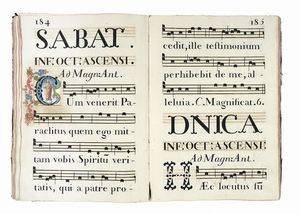 184
SABAT.
INF. OCT. ASCENSI.
Ad Magn: Ant.
Cum venerit Pa-
raclitus quem ego mit-
tam vobis Spiritũ veri-
tatis, qui a patre pro-
185
cedit, ille testimonium
perhibebit de me, al-
leluia. C. Magnificat. 6.
DNICA
INF. OCT. ASCENSI.
Ad Magn: Ant.
HÆc locutus sũ